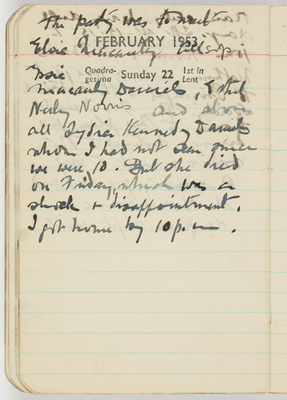 The party was to meet
Elsie Macaully Allsop,
FEBRUARY 1953
Quadra-
gesima Sunday 22 1st in
Lent
Josie
Macauly Daniels, Ethel
Neeby Norris and above
all Lydia Kennedy Daniels
whom I had not seen since
we were 10. But she died
on Friday, which was a
shock + disappointment.
I got home by 10 p.m.